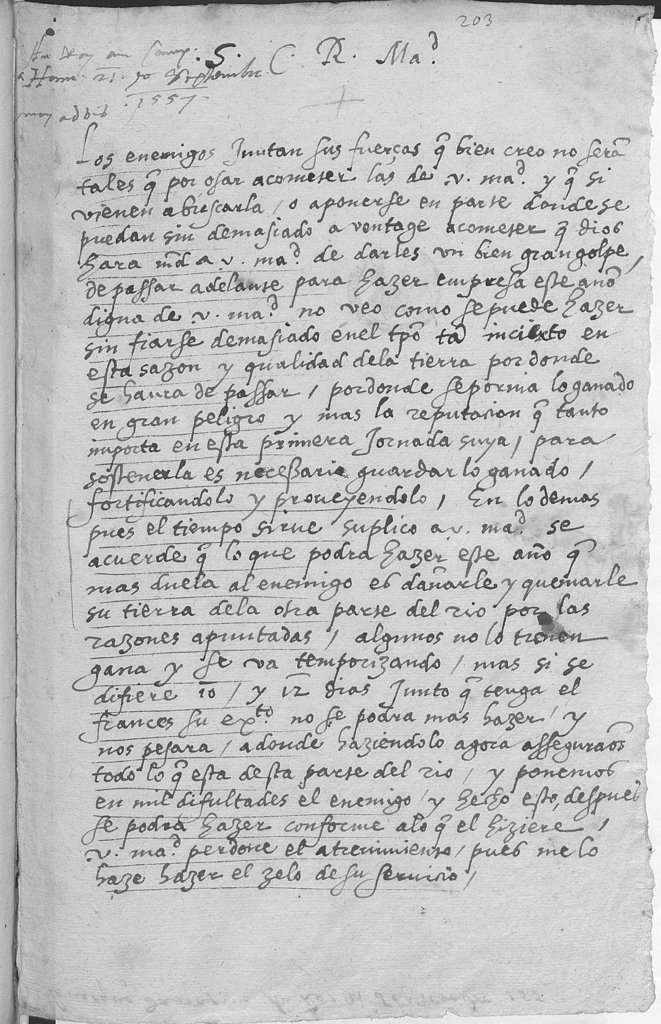 203
S. C. R. Mad.
21. de Septembre
1557.
Los enemigos Juntan sus fuerças q̃ bien creo no serã
tales q̃ por osar acometer las de .v. mad. y q̃ si
vienen a buscarla / o aponerse en parte donde se
puedan sin demasiado a ventage acometer q̃ dios
hara m̃d a v. mad. de darles vn bien gran golpe /
de passar adelante para hazer empresa este año
digna de v. mad. no veo como se puede hazer
sin fiarse demasiado enel tpõ tã incierto en
esta sazon y qualidad dela tierra por donde
se haura de passar / por donde se pornia lo ganado
en gran peligro y mas la reputacion q̃ tanto
importa en esta primera Jornada suya / para
sostenerla es necessario guardar lo ganado /
fortificandolo y proueyendolo / En lo demas
pues el tiempo sirue suplico a .v. mad. se
acuerde q̃ lo que podra hazer este año q̃
mas duela al enemigo es dañarle y quemarle
su tierra dela otra parte del rio por las
razones apuntadas / algunos no lo tienen
gana y se va temporizando / mas si se
difiere 10 / y 12 dias Junto q̃ tenga el
frances su exto. no se podra mas hazer / y
nos pesara / adonde haziendolo agora asseguramos
todo lo q̃ esta desta parte del rio / y ponemos
en mil difultades el enemigo / y hecho esto, despues
se podra hazer conforme alo q̃ el hiziere /
.v. mad. perdone el atreuimiento / pues me lo
haze hazer el zelo de su seruicio /